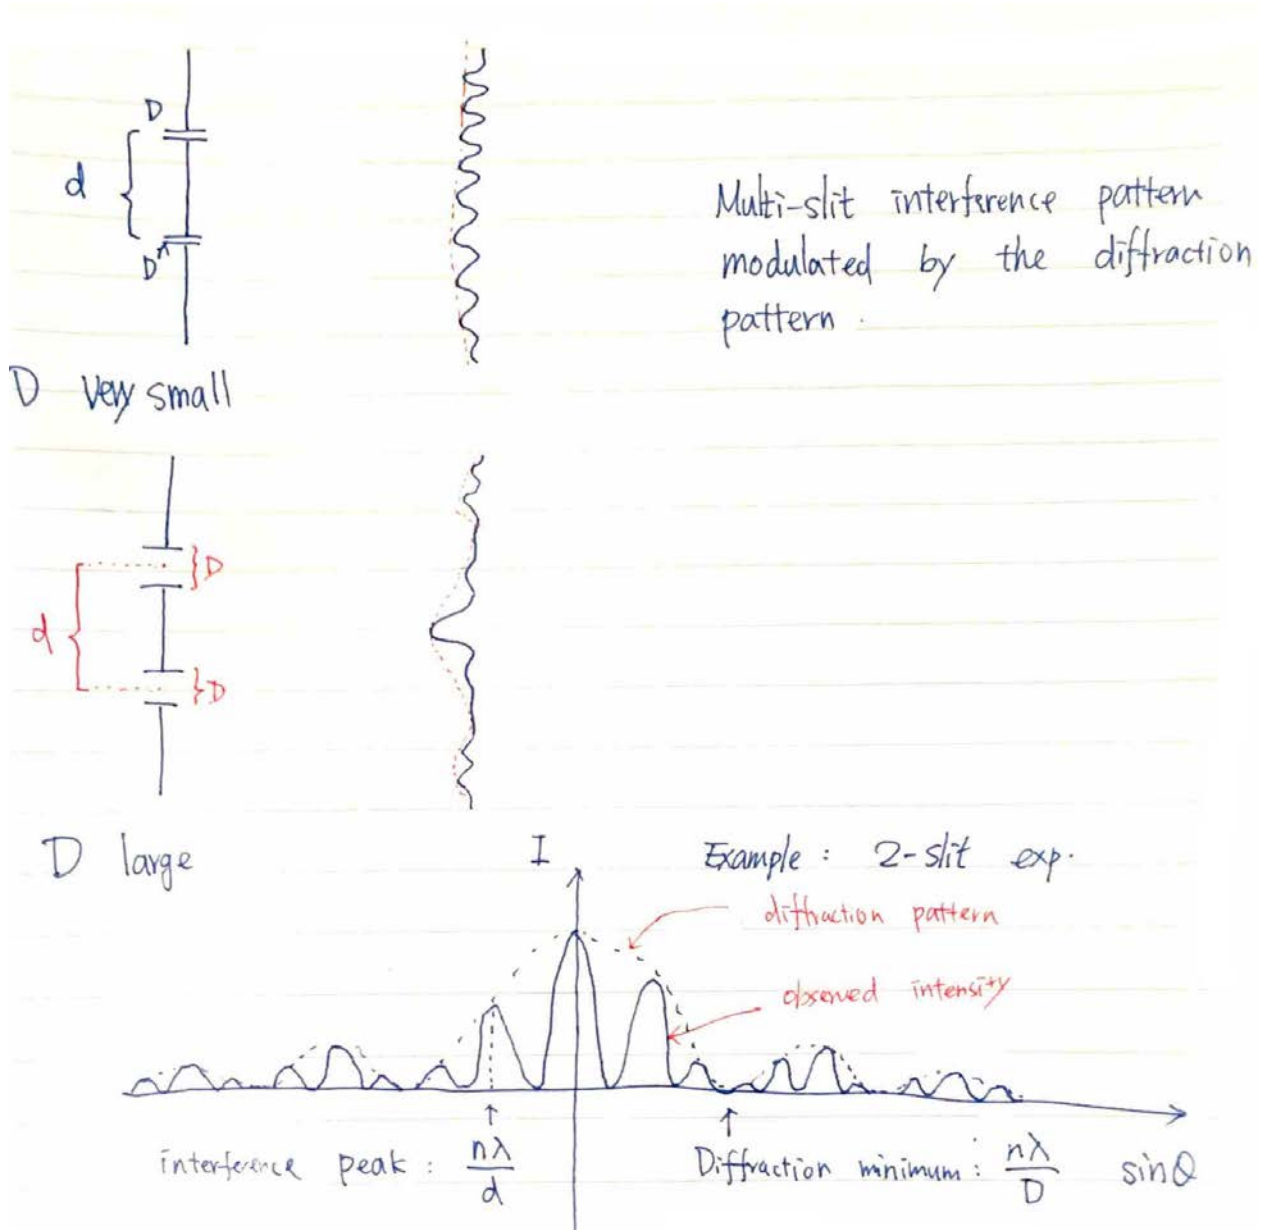 D
d
D
Multi-slit interference pattern
modulated by the diffraction
pattern.
D Very small
D
d
D
D large
I
Example: 2-slit exp.
diffraction pattern
observed intensity
interference peak: nλ/d
Diffraction minimum: nλ/D
sinθ